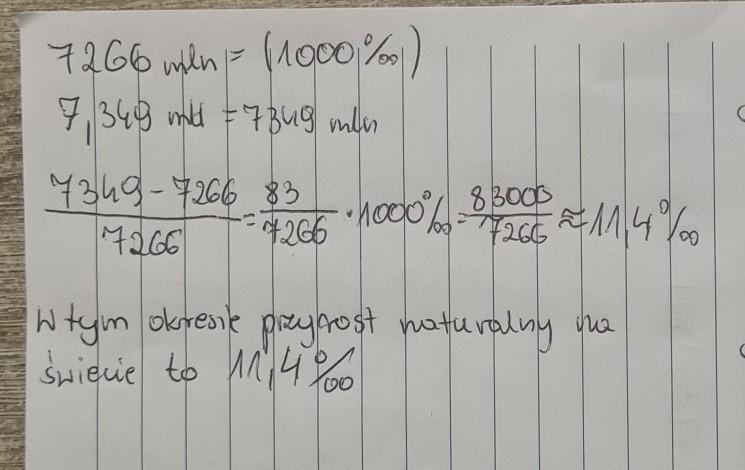 7266 mln = (1000‰)
7,349 mld = 7349 mln
7349 - 7266 / 7266 = 83 / 7266 · 1000‰ = 83000 / 7266 ≈ 11,4‰
W tym okresie przyrost naturalny na
świecie to 11,4‰